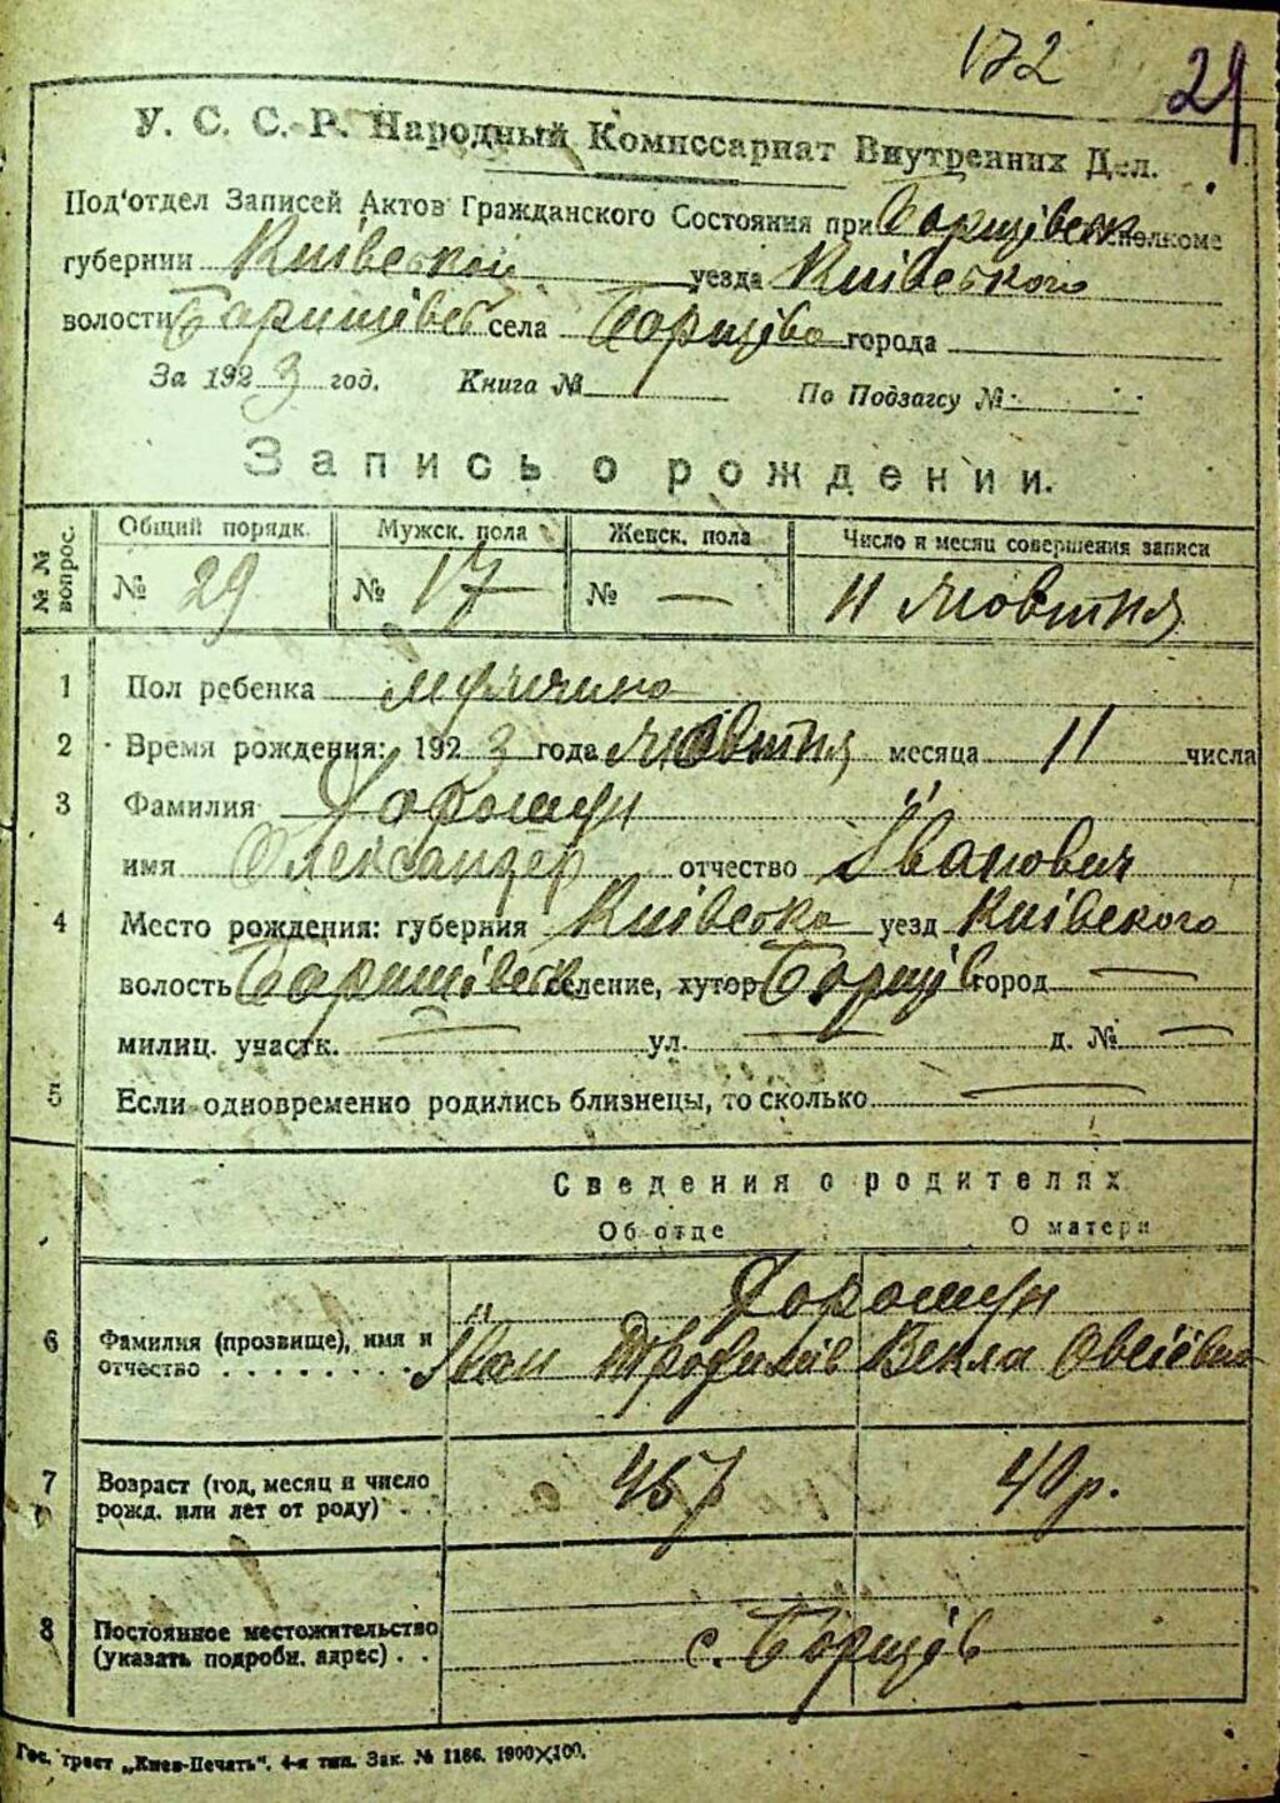 172 29
У. С. С. Р. Народный Комиссариат Внутренних Дел.
Под'отдел Записей Актов Гражданского Состояния при Борщівськ исполкоме
губернии Київської уезда Київського
волости Баришівсь села Борщіво города
За 1923 год. Книга № По Подзагсу №
Запись о рождении.
№ № вопрос. Общий порядк. Мужск. пола Женск. пола Число и месяц совершения записи
№ 29 № 17 № — 11 жовтня
1 Пол ребенка мужчина
2 Время рождения: 1923 года жовтня месяца 11 числа
3 Фамилия Дорошун
имя Олександер отчество Іванович
4 Место рождения: губерния Київська уезд Київского
волость Баришівськ селение, хутор Борщів город —
милиц. участк. — ул. — д. № —
5 Если одновременно родились близнецы, то сколько —
Сведения о родителях
Об отце О матери
Дорошун
6 Фамилия (прозвище), имя и отчество . . . . . . . . Іван Трофимів Векла Овсіівна
7 Возраст (год, месяц и число рожд. или лет от роду) . . 45 р 40 р.
8 Постоянное местожительство (указать подробн. адрес) . . с. Борщів
Гос. трест „Киев-Печать“. 4-я тип. Зак. № 1166. 1900×100.